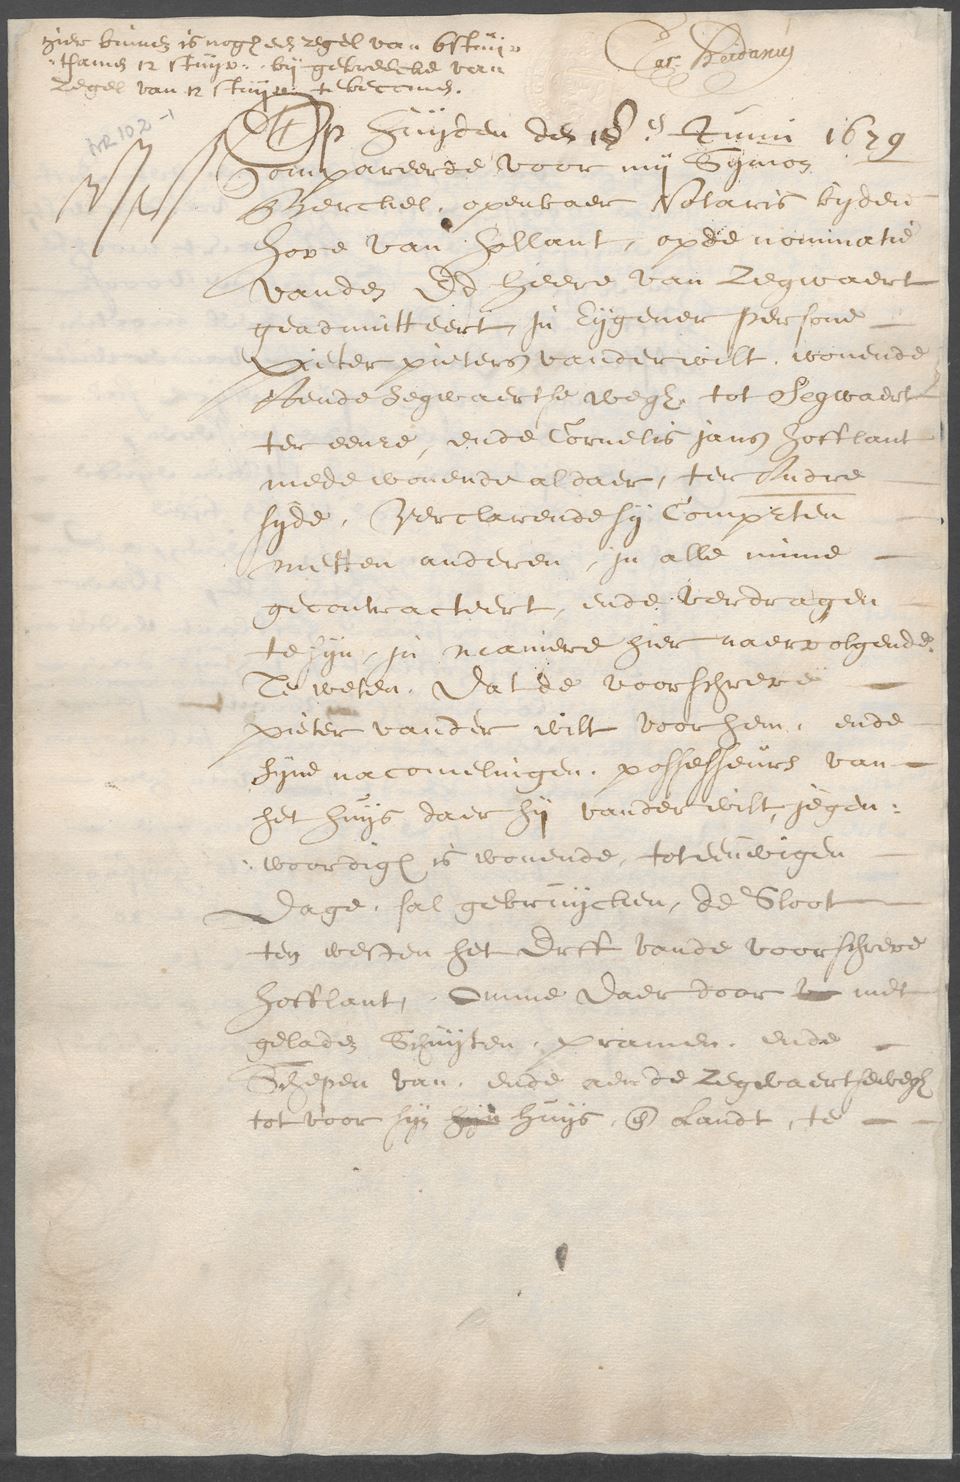 hier binnen is nogh een zegel van 6 stuiv:
:tsamen 12 stuyv:. bij gebreecke van
Zegel van 12 stuyv: te becomen.
Car: Heidanus
NR 102-1
Op Huyden den 18e Junii 1679
Compareerde voor mij Symon
van Berckel, openbaer Notaris byden
hove van Hollant, opde nominatie
vanden Ed heere van Zegwaert
geadmitteert, in Eygener persone
Pieter pieters vander wilt, wonende
Aende Segwaertse wegh, tot Segwaert
ter eenre, ende Cornelis jans hofflant
mede wonende aldaer, ter Andre
syde, Verclarende sy Comp:ten
metten anderen, in alle minne
gecontracteert, ende verdragen
te syn, in maniere hier naervolgende.
Te weten, Dat de voorschreve
pieter vander wilt voor hem, ende
syne nacomelingen, possesseurs van
het huys daer hy vander wilt, jegen:
:woordigh is wonende, tot eeuwigen
Dage, sal gebruycken, de Sloot
ten westen het Erff vande voorschreve
hofflant, Omme Daer door met
geladen Schuyten, pramen, ende
Schepen van, ende aende Zegwaertsewegh
tot voor syn huys, en Landt, te